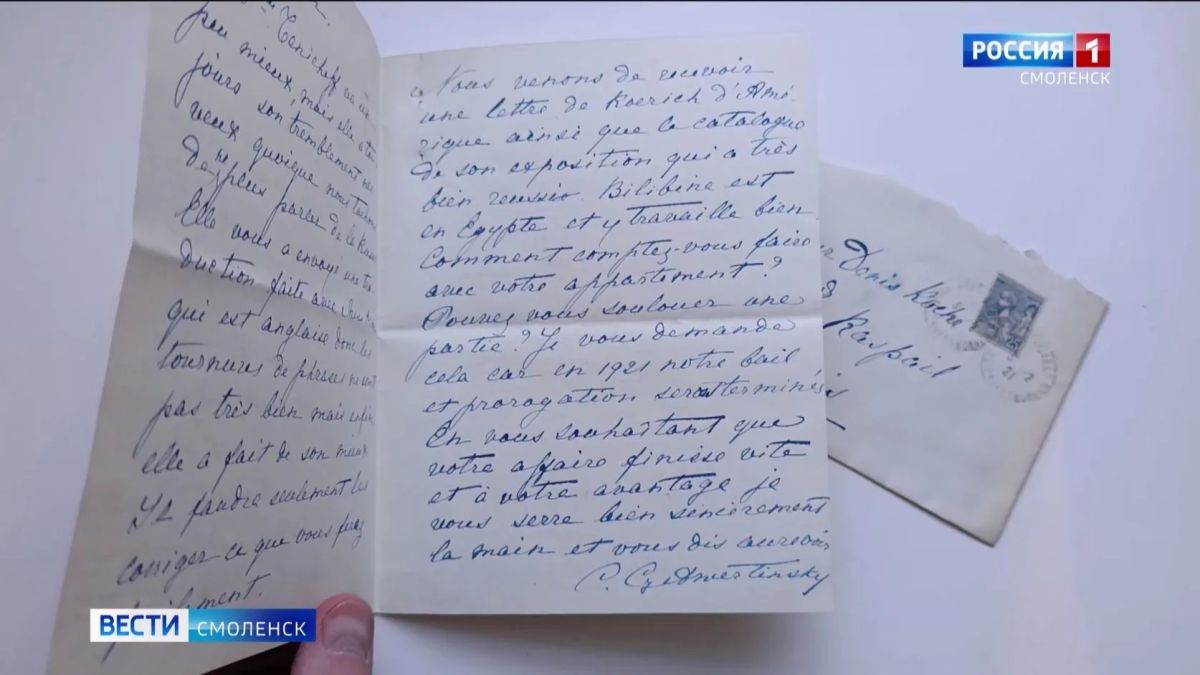 Tenicheff
peu mieux, mais elle a tou
jours son tremblement ner
veux quoique nous
De plus parler de la
Elle vous a envoyé une tra
duction faite avec
qui est anglaise donc les
tournures de phrases ne sont
pas très bien mais enfin
elle a fait de son mieux
Il faudra seulement les
corriger ce que vous ferez
Nous venons de recevoir
une lettre de Roerich d'Amé-
rique ainsi que le catalogue
de son exposition qui a très
bien reussie. Bilibine est
en Egypte et y travaille bien.
Comment comptez-vous faire
avec votre appartement?
Pouvez vous soulouer une
partie? Je vous demande
cela car en 1921 notre bail
et prorogation seront terminés
En vous souhaitant que
votre affaire finisse vite
et à votre avantage je
vous serre bien sincèrement
la main et vous dis aurevoir
C. Czedwertinsky
Denis Roche
Raspail
РОССИЯ 1
СМОЛЕНСК
ВЕСТИ СМОЛЕНСК